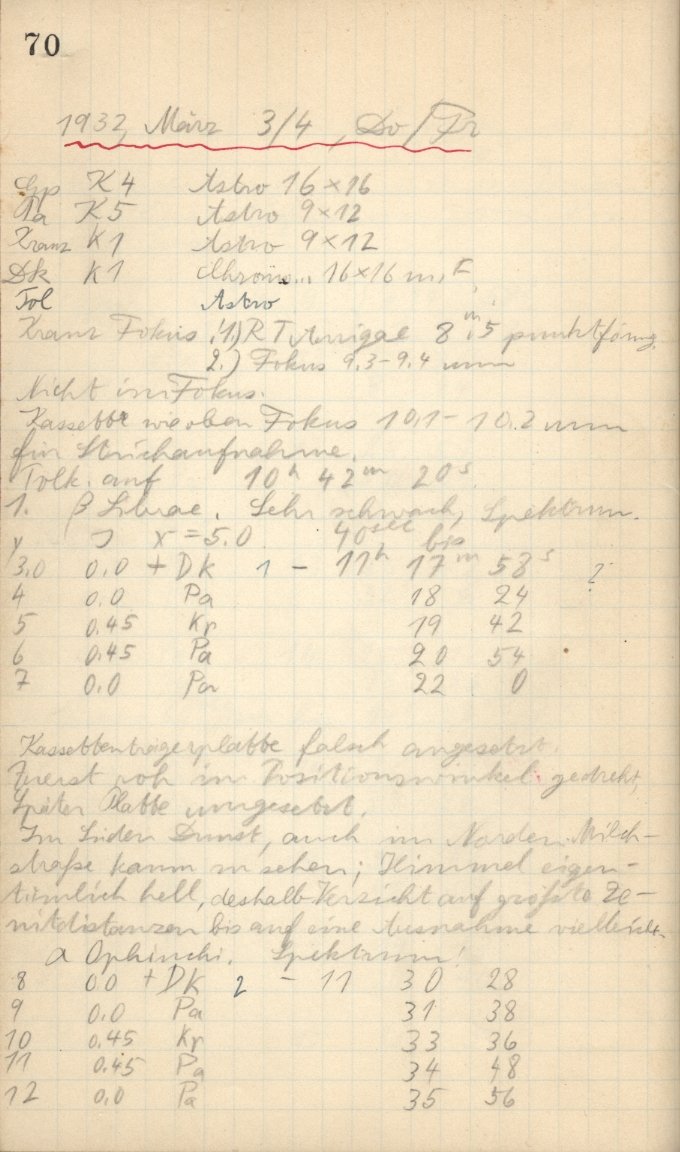 70
1932, März 3/4, Do/Fr
K4 Astro 16×16
Pa K5 Astro 9×12
Kranz K1 Astro 9×12
Dk K1 Chrom... 16×16 m. F.
Tol Astro
Kranz Fokus 1.) R T Aurigae 8m,5 punktförmig.
2.) Fokus 9,3-9,4 mm
Nicht im Fokus.
Kassette wie oben Fokus 10,1-10,2 mm
für Strichaufnahme.
Tolk. auf 10h 42m 20s
1. β Librae. Sehr schwach, Spektrum.
y x=5.0 40sec bis
3,0 0.0 + Dk 1 - 11h 17m 58s ?
4 0.0 Pa 18 24
5 0.45 Kr 19 42
6 0.45 Pa 20 54
7 0.0 Pa 22 0
Kassettenträgerplatte falsch angesetzt.
Zuerst roh im Positionswinkel gedreht,
Später Platte umgesetzt.
Im Süden Dunst, auch im Norden. Milch-
straße kaum zu sehen; Himmel eigen-
tümlich hell, deshalb Verzicht auf größte Ze-
nitdistanzen bis auf eine Ausnahme vielleicht.
α Ophiuchi. Spektrum!
8 0.0 + DK 2 - 11 30 28
9 0.0 Pa 31 38
10 0.45 Kr 33 36
11 0.45 Pa 34 48
12 0.0 Pa 35 56